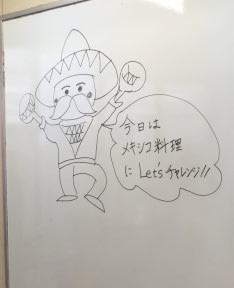 今日は
メキシコ料理
に Let's チャレンジ!!